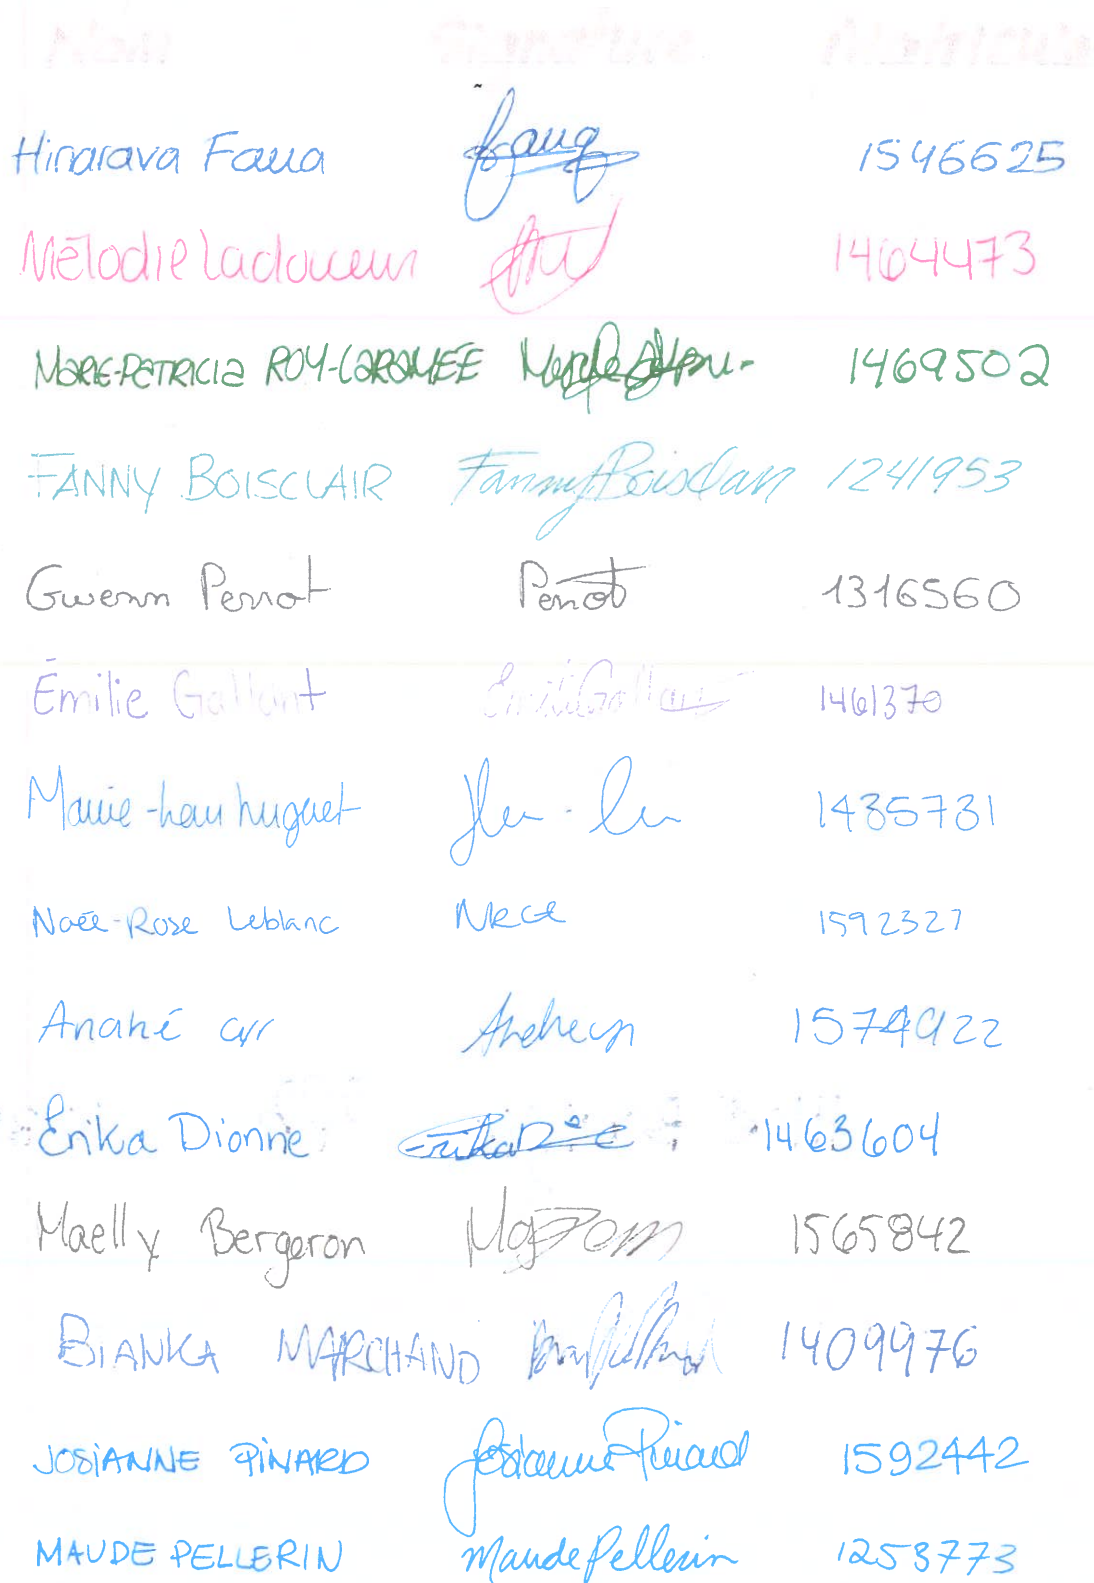 Hinarava Faua faua 1546625
Mélodie Ladouceur 1464473
MARIE-PATRICIA ROY-LARAMÉE 1469502
FANNY BOISCLAIR Fanny Boisclair 1241953
Gwenn Perrot Perrot 1316560
Émilie Gallant Émilie Gallant 1461370
Marie-Lou Huguet 1435731
Noée-Rose Leblanc 1592327
Anahé Cyr Anahé Cyr 1574922
Érika Dionne Erika D 1463604
Maelly Bergeron 1565842
BIANKA MARCHAND 1409976
JOSIANNE PINARD Josianne Pinard 1592442
MAUDE PELLERIN Maude Pellerin 1253773